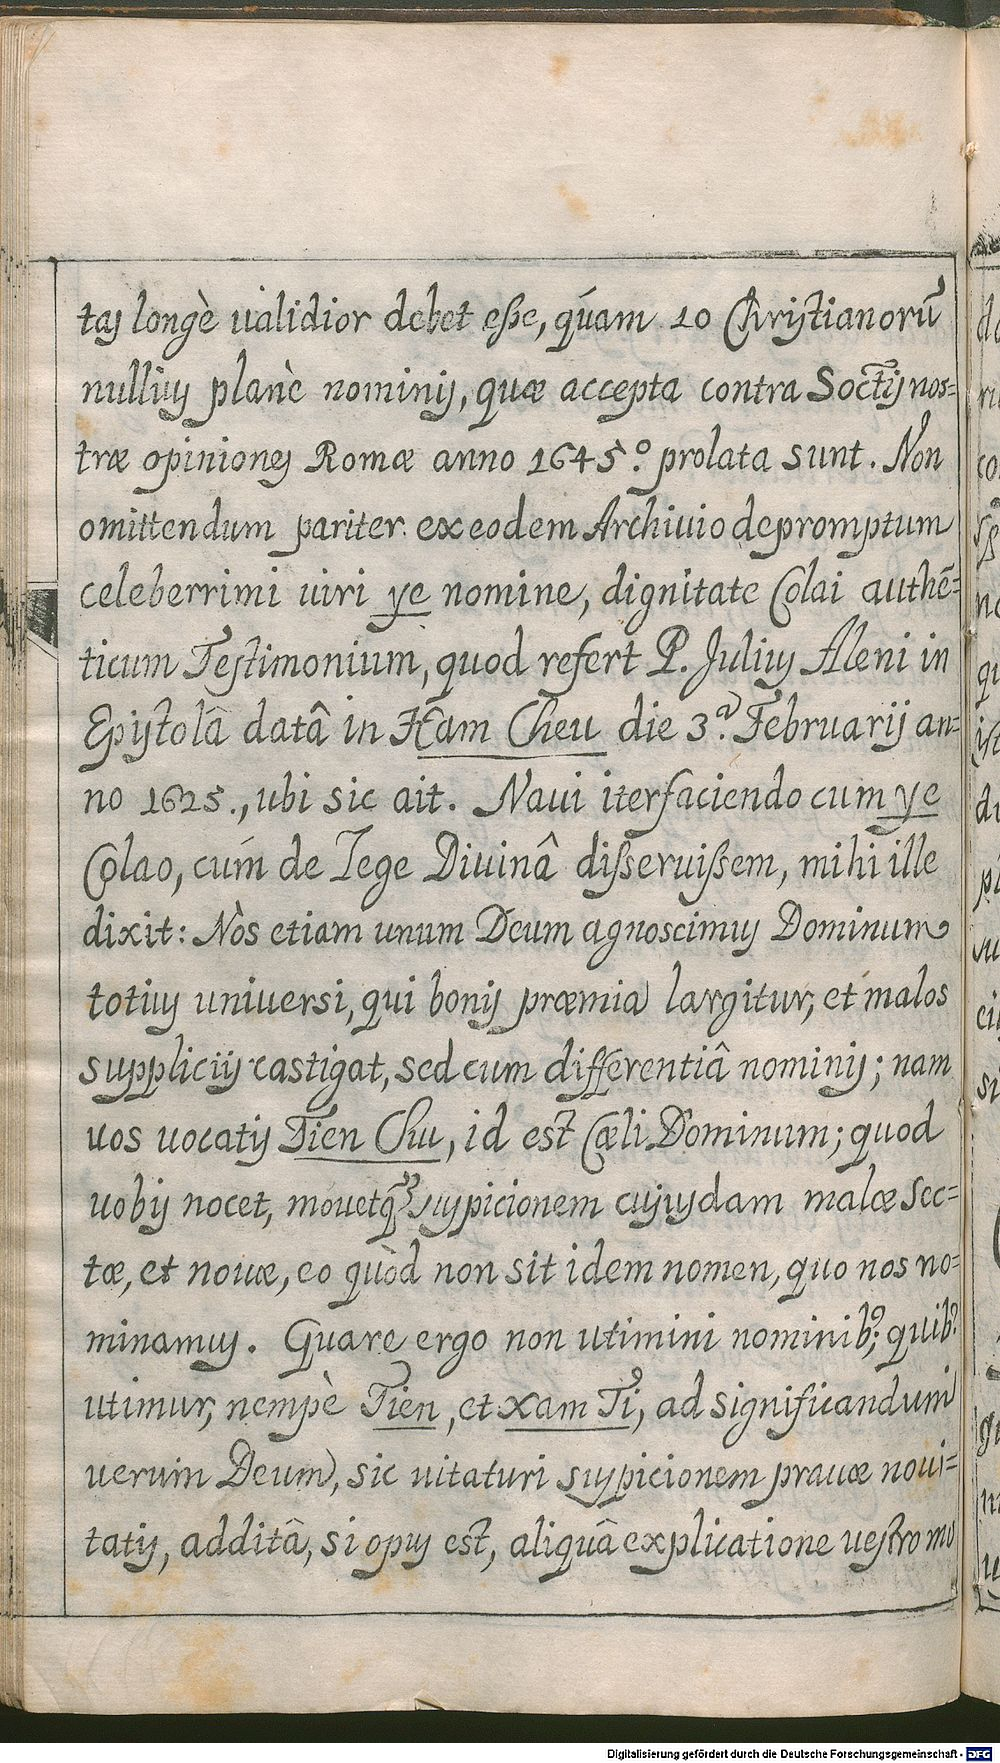 tas longè ualidior debet eße, quám 10 Christianorū
nullius planè nominis, quæ accepta contra Soctis nos=
træ opiniones Romæ anno 1645.º prolata sunt. Non
omittendum pariter ex eodem Archiuio depromptum
celeberrimi uiri ye nomine, dignitate Colai authē=
ticum Testimonium, quod refert P. Julius Aleni in
Epistolâ datâ in Ham Cheu die 3.ª Februarij an=
no 1625., ubi sic ait. Naui iter faciendo cum ye
Colao, cúm de Lege Diuinâ dißeruißem, mihi ille
dixit: Nòs etiam unum Deum agnoscimus Dominum
totius uniuersi, qui bonis præmia largitur, et malos
supplicijs castigat, sed cum differentiâ nominis; nam
uos uocatis Tien Chu, id est Cæli Dominum; quod
uobis nocet, mouetq́; suspicionem cujusdam malæ Sec=
tæ, et nouæ, eo quòd non sit idem nomen, quo nos no=
minamus. Quare ergo non utimini nominib9; quib9
utimur, nempè Tien, et xam Ti, ad significandum
uerum Deum, sic uitaturi suspicionem prauæ noui=
tatis, additâ, si opus est, aliquâ explicatione uestro mo
Digitalisierung gefördert durch die Deutsche Forschungsgemeinschaft - DFG